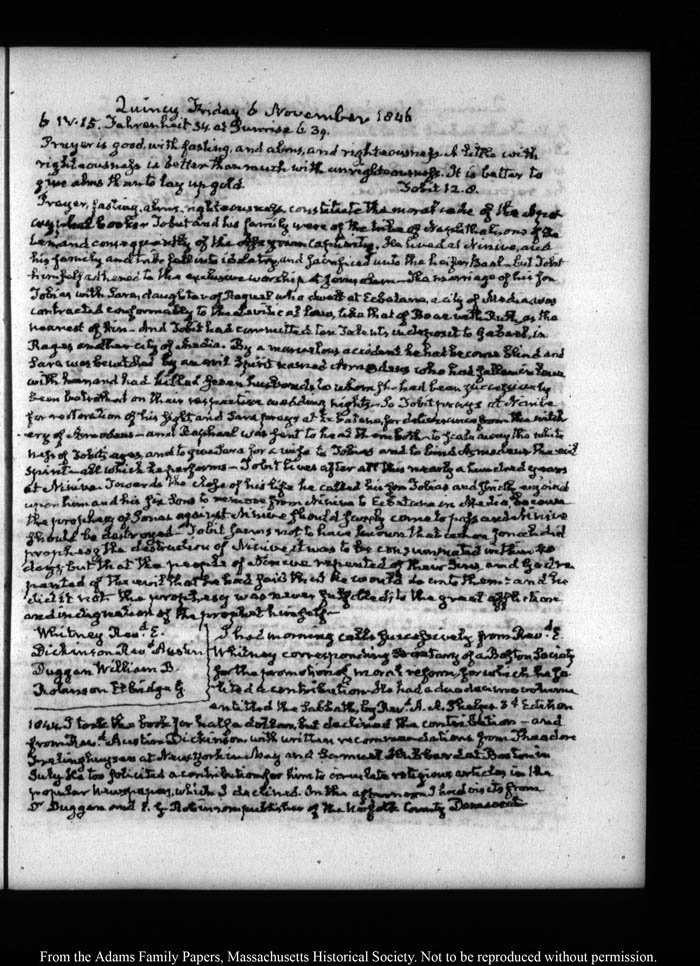 Quincy Friday 6 November 1846
6 IV.15. Fahrenheit 34. at Sunrise 6.39.
Prayer is good, with fasting, and alms, and righteousness. A little with
righteousness is better than much with unrighteousness. It is better to
give alms than to lay up gold. Tobit 12.8.
Prayer, fasting, alms, righteousness constitute the moral code of the Apo-
cryphal books. Tobit and his family were of the tribe of Naphthali, one of the
ten, and consequently of the Assyrian captivity. He lived at Ninive, and
his family and tribe fell into idolatry and sacrificed unto the heifer Baal – but Tobit
himself adhered to the exclusive worship at Jerusalem – The marriage of his Son
Tobias with Sara, daughter of Raguel who dwelt at Ecbatana, a city of Media was
contracted conformably to the Levitical Law, like that of Boaz with Ruth, as the
nearest of kin – And Tobit had committed ten Talents in deposit to Gabael, in
Rages another city of Media. By a marvelous accident he had become blind and
Sara was bewitched by an evil Spirit named Asmodeus who had fallen in love
with her and had killed Seven husbands to whom she had been successively
been betrothed on their respective wedding nights – So Tobit prays at Nineve
for restoration of his sight and Sara prays at Ecbatana, for deliverance from the witch
ery of Asmodeus – and Raphael was sent to heal them both – to scale away the white
ness of Tobit's eyes, and to give Sara for a wife to Tobias and to bind Asmodeus the evil
spirit – all which he performs – Tobit lives after all this nearly a hundred years
at Ninive. Towards the close of his life he called his son Tobias and strictly enjoined
upon him and his six Sons to remove from Ninive to Ecbatana in Media because
the prophecy of Jonas against Ninive should surely come to pass and Ninive
should be destroyed – Tobit seems not to have known that when Jonas did
prophesy the destruction of Ninive it was to be consummated within 40
days, but that the people of Nineve repented of their Sins, and God re-
pented of the evil that he had said that he would do unto them: and he
did it not. The prophesy was never fulfilled; to the great affliction
and indignation of the prophet himself –
Whitney Revd. E.
Dickinson Revd. Austin
Duggan William B.
Robinson Elbridge G
I had morning calls successively from Revd. E.
Whitney corresponding Secretary of a Boston Society
for the promotion of moral reform, for which he so-
licited a contribution. He had a duodecimo volume
entitled the Sabbath, by Rev. A. A. Phelps. 3d Edition
1844. I took the book for half a dollar, but declined the contribution – and
from Revd. Austin Dickinson with written recommendations from Theodore
Frelinghuysen at New York in May and Samuel Hubbard at Boston in
July. He too solicited a contribution for him to circulate religious articles in the
popular Newspapers, which I declined. In the afternoon I had visits from
Dr Duggan and E. G. Robinson publisher of the Norfolk County Democrat
From the Adams Family Papers, Massachusetts Historical Society. Not to be reproduced without permission.